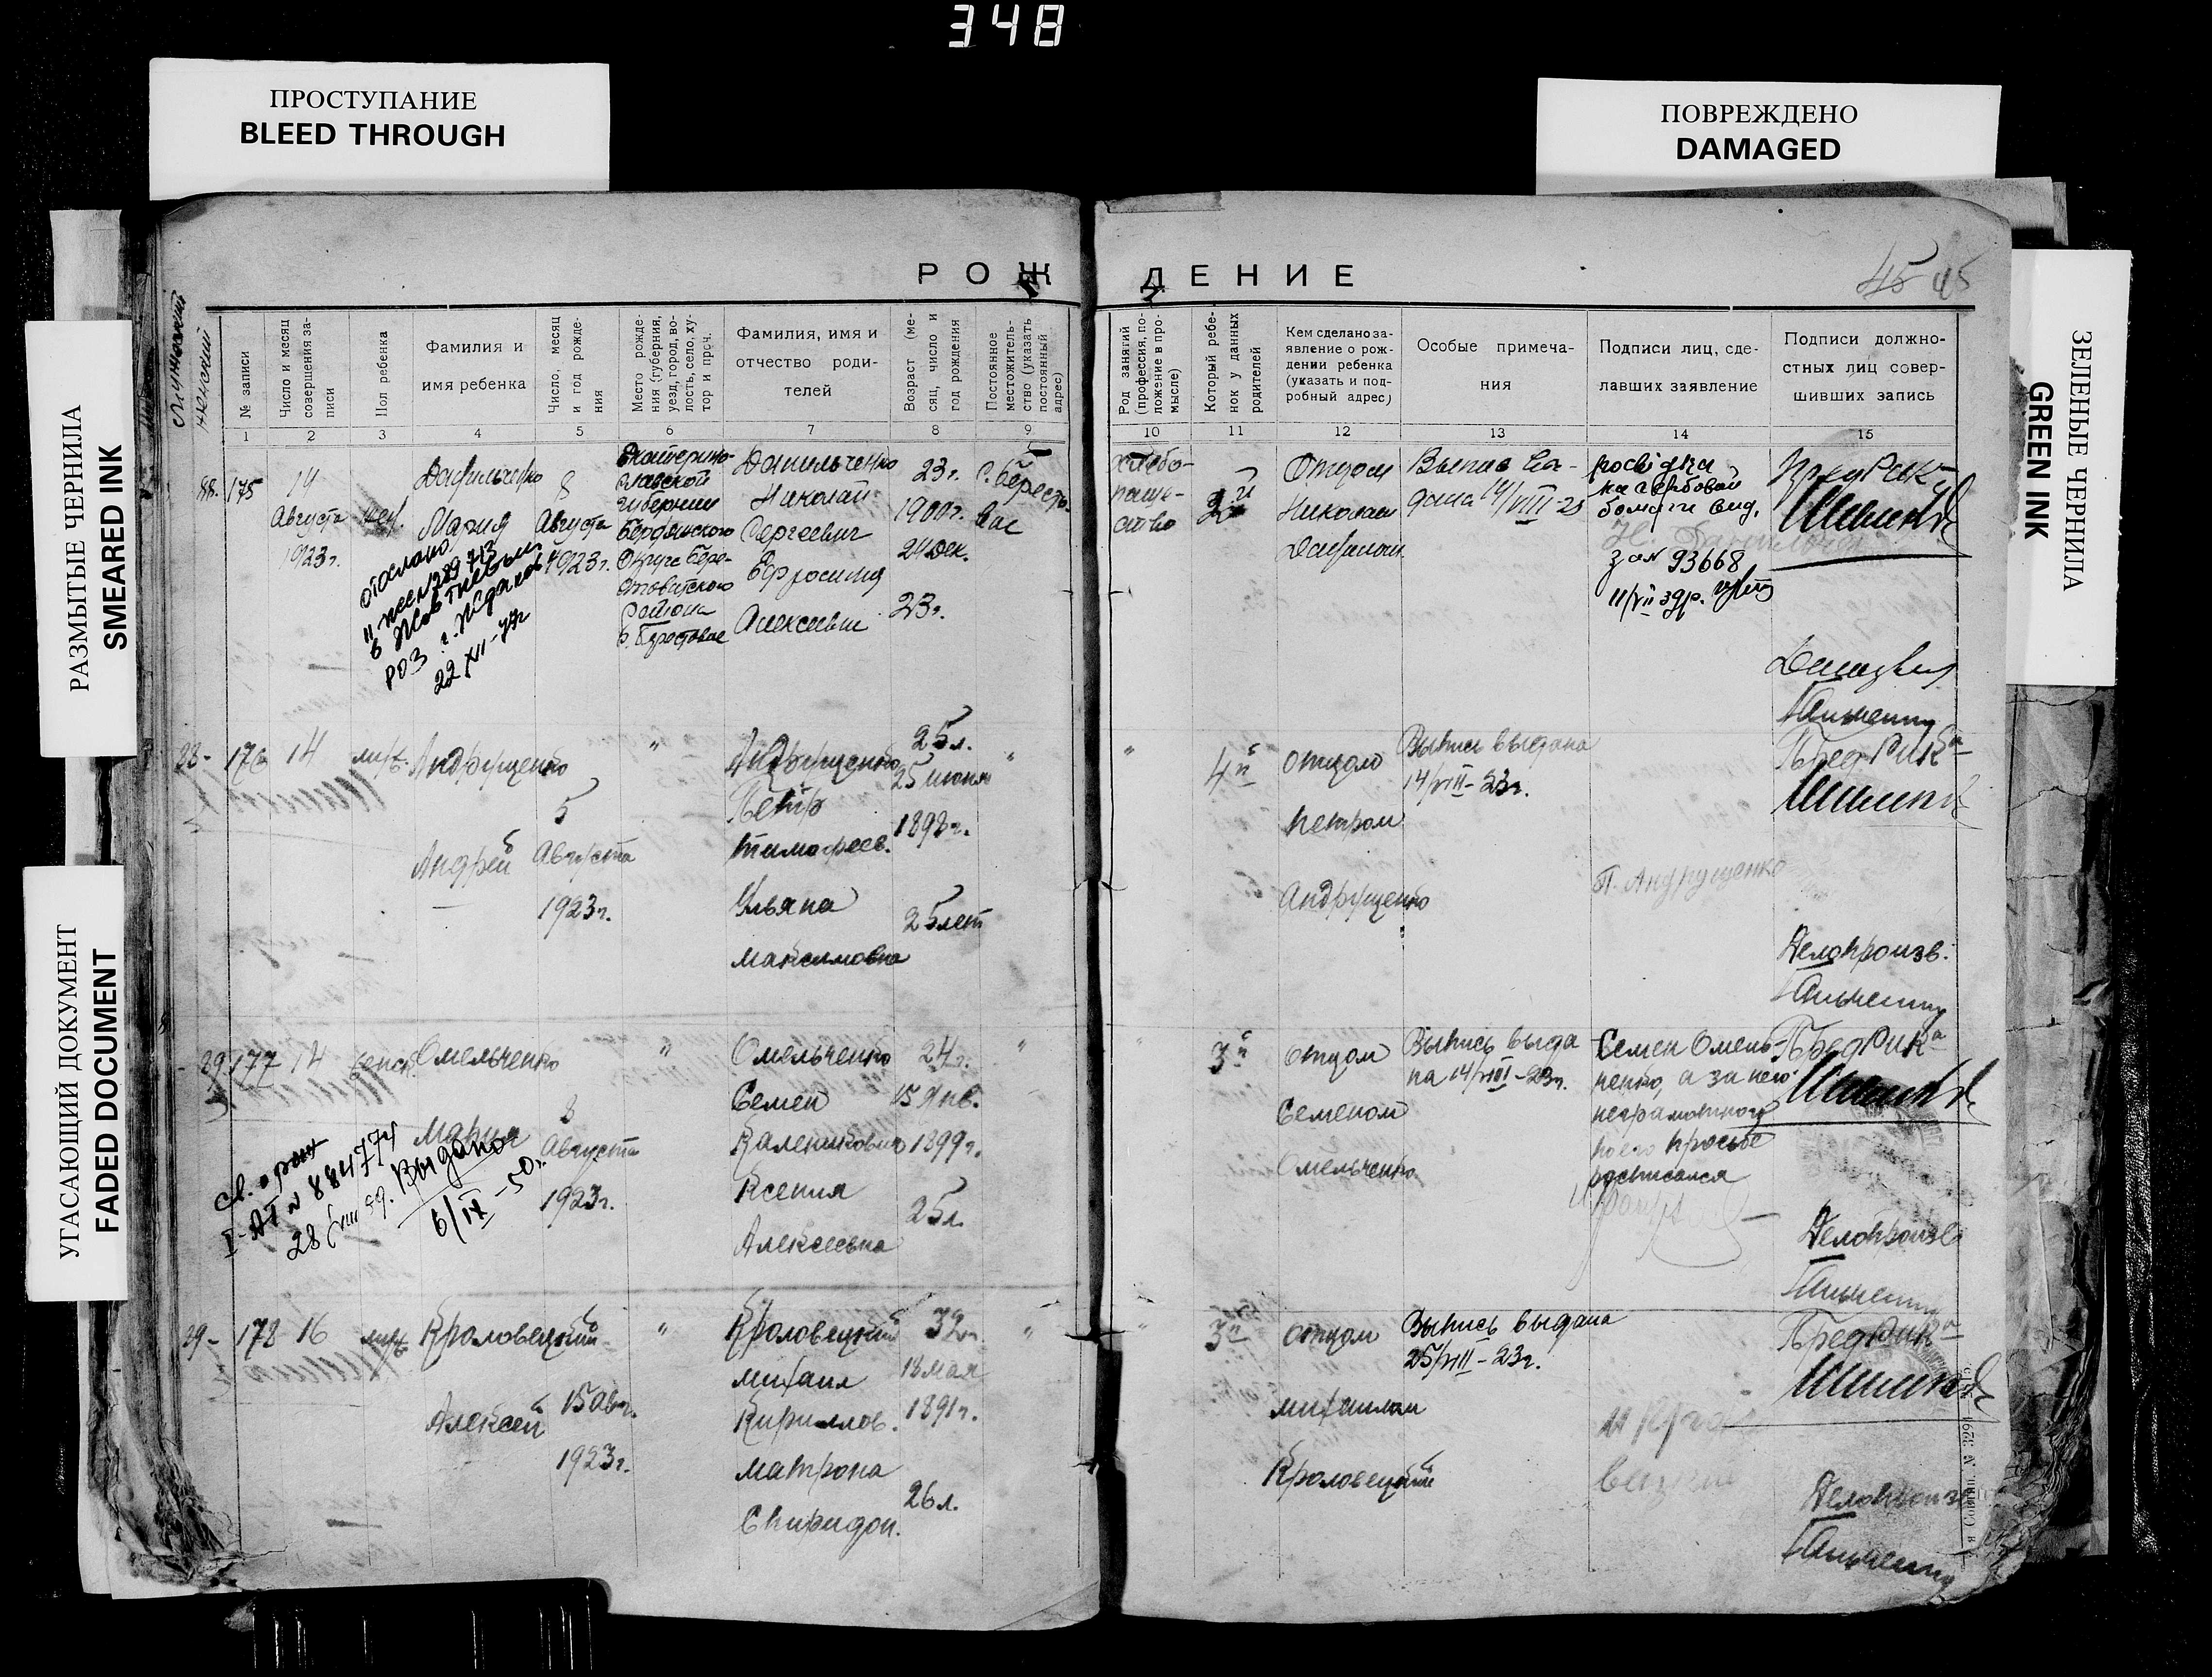 348
ПРОСТУПАНИЕ
BLEED THROUGH
ПОВРЕЖДЕНО
DAMAGED
РАЗМЫТЫЕ ЧЕРНИЛА
SMEARED INK
УГАСАЮЩИЙ ДОКУМЕНТ
FADED DOCUMENT
ЗЕЛЕНЫЕ ЧЕРНИЛА
GREEN INK
РОЖДЕНИЕ
45 45
Мужской
женский
№ записи
Число и месяц
совершения за-
писи
Пол ребенка
Фамилия и
имя ребенка
Число, месяц
и год рожде-
ния
Место рожде-
ния (губерния,
уезд, город, во-
лость, село, ху-
тор и проч.
Фамилия, имя и
отчество роди-
телей
Возраст (ме-
сяц, число и
год рождения
Постоянное
местожитель-
ство (указать
постоянный
адрес)
Род занятий
(профессия, по-
ложение в про-
мысле)
Который ребе-
нок у данных
родителей
Кем сделано за-
явление о рож-
дении ребенка
(указать и под-
робный адрес)
Особые примеча-
ния
Подписи лиц, сде-
лавших заявление
Подписи должно-
стных лиц совер-
шивших запись
1 2 3 4 5 6 7 8 9 10 11 12 13 14 15
175
14
Августа
1923г.
жен.
Данильченко
Мария
8
Августа
1923г.
Екатерино-
славской
губернии
Бердянского
Округа Бере-
стоватского
Района
с. Берестовое
Данильченко
Николай
Сергеевич
Ефросиния
Алексеевн
23г.
1900г.
24 дек.
23г.
с. Бересто-
вое
хлебо-
паше-
ство
2й
Отцом
Николаем
Выпись вы-
дана 14/VIII-23
розвідка
на гербовой
бомаги вид.
за N 93668
11/VII 39р.
ПредРик
отослано
в Жовтневый
РОЗ г. Жданов
22/XII-77г
28- 176 14 муж.
Андрущенко
Андрей
5
Августа
1923г.
"
Андрущенко
Петр
Тимофеев.
Ульяна
Максимовна
25л.
25 июня
1898г.
25лет
"
"
4й
отцом
Петром
Андрущенко
Выпись выдана
14/VIII-23г.
П. Андрущенко
ПредРика
Делопроизв.
177 14
Омельченко
Мария
3
Августа
1923г.
"
Омельченко
Семен
Каленикович
Ксения
Алексеевна
24г.
15 Янв.
1899г.
25л.
"
3й
отцом
Семеном
Омельченко
Выпись выда
на 14/VIII-23г.
Семен Омель-
ченко, а за него
неграмотного
по его просьбе
росписался
ПредРика
Делопроизв
Св. о рож
I-АТ N 884774
Выдано
6/IX-50г.
29- 178 16 муж
Кроловецкий
Алексей
15 авг.
1923г.
"
Кроловецкий
Михаил
Кириллов.
Матрона
Спиридон.
32г.
18 мая
1891г.
26л.
"
3й
отцом
Михаилом
Кроловецкий
Выпись выдана
25/VIII-23г.
ПредРика
Делопроизв